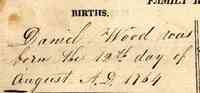 FAMILY R
BIRTHS.
Daniel Wood was
born the 12th day of
August A.D. 1764